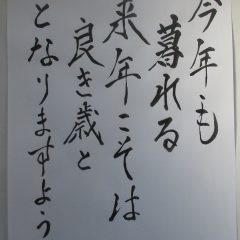 今年も
暮れる
来年こそは
良き歳と
となりますよう